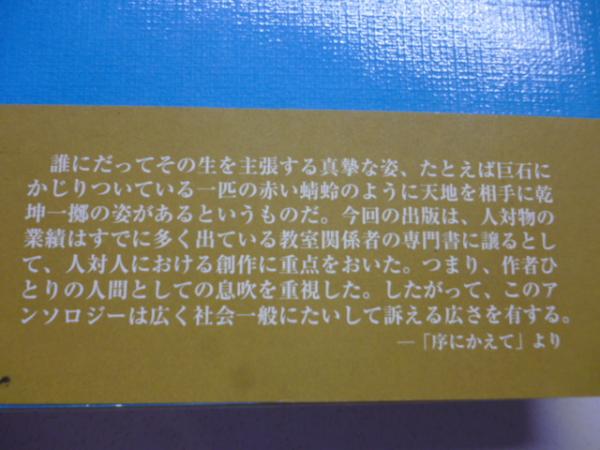 誰にだってその生を主張する真摯な姿、たとえば巨石に
かじりついている一匹の赤い蜻蛉のように天地を相手に乾
坤一擲の姿があるというものだ。今回の出版は、人対物の
業績はすでに多く出ている教室関係者の専門書に譲るとし
て、人対人における創作に重点をおいた。つまり、作者ひ
とりの人間としての息吹を重視した。したがって、このア
ンソロジーは広く社会一般にたいして訴える広さを有する。
―「序にかえて」より